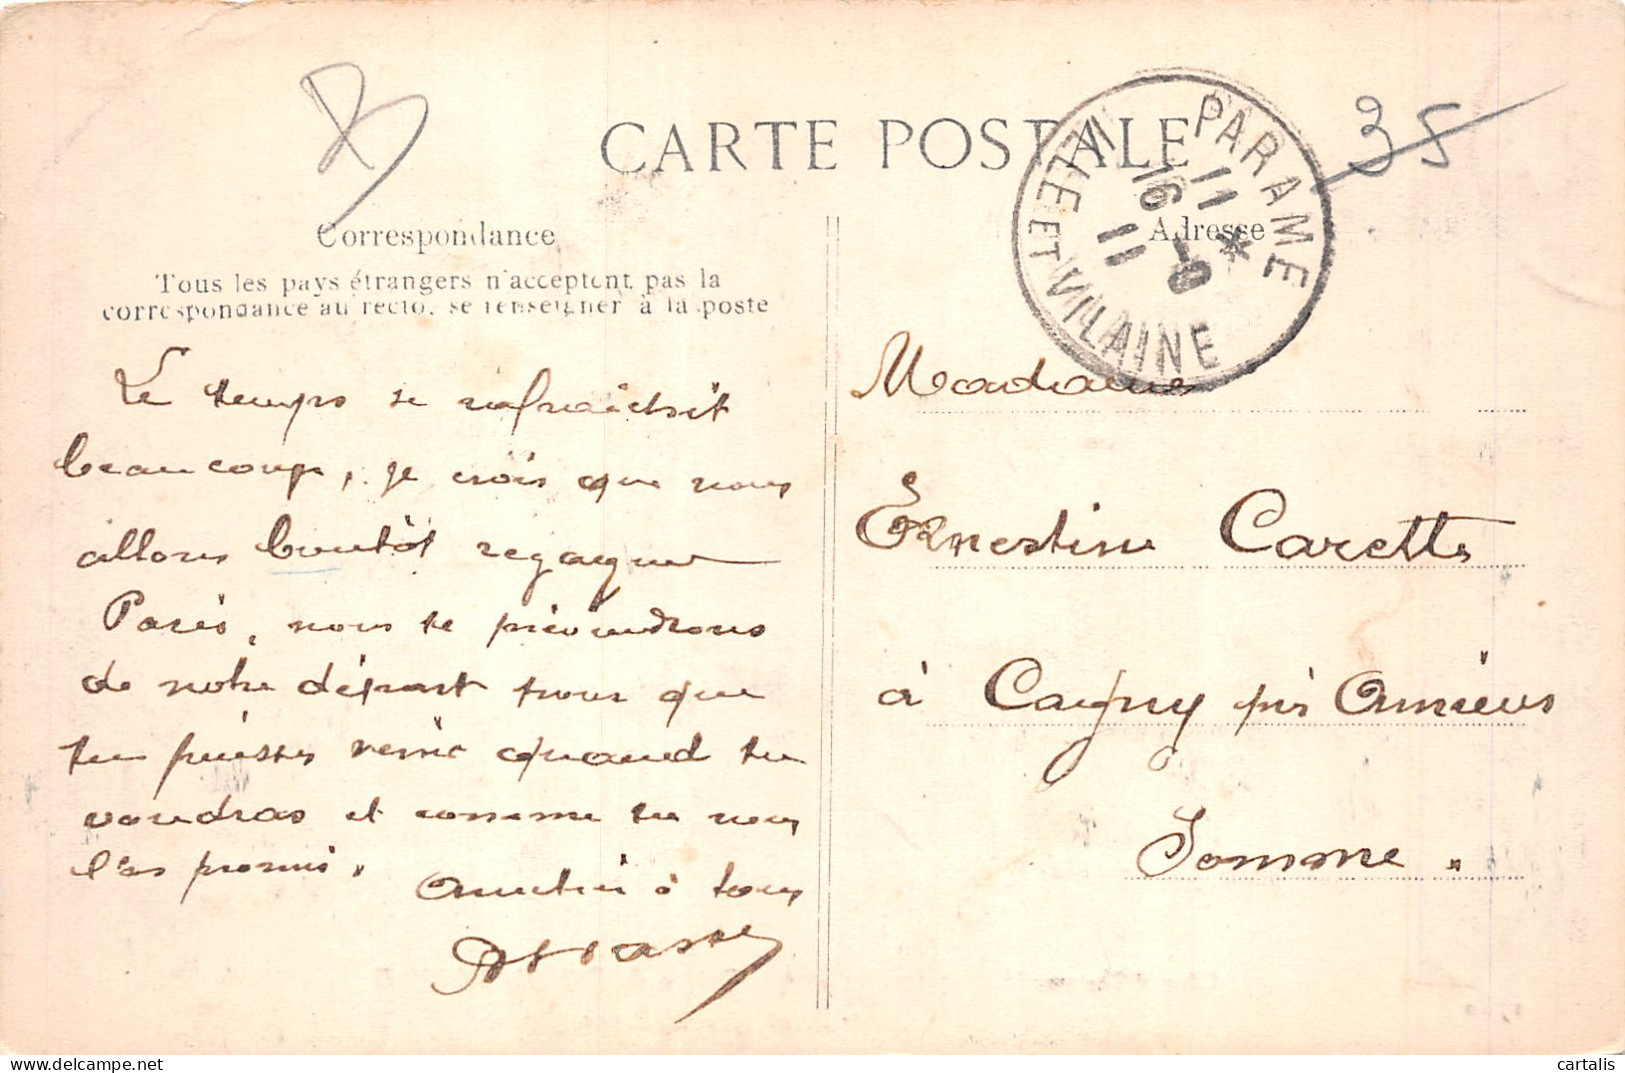 CARTE POSTALE
35
Correspondance
Adresse
Tous les pays étrangers n'acceptent pas la
correspondance au recto, se renseigner à la poste
PARAME
ILLE ET VILAINE
11
16 -9
11
Le temps se rafraichit
beaucoup, je crois que nous
allons bientôt regagner
Paris, nous te préviendrons
de notre départ pour que
tu puisses venir quand tu
voudras et comme tu nous
l'as promis.
Amitiés à tous
Madame
Ernestine Carette
à Cagny près Amiens
Somme.
cartalis